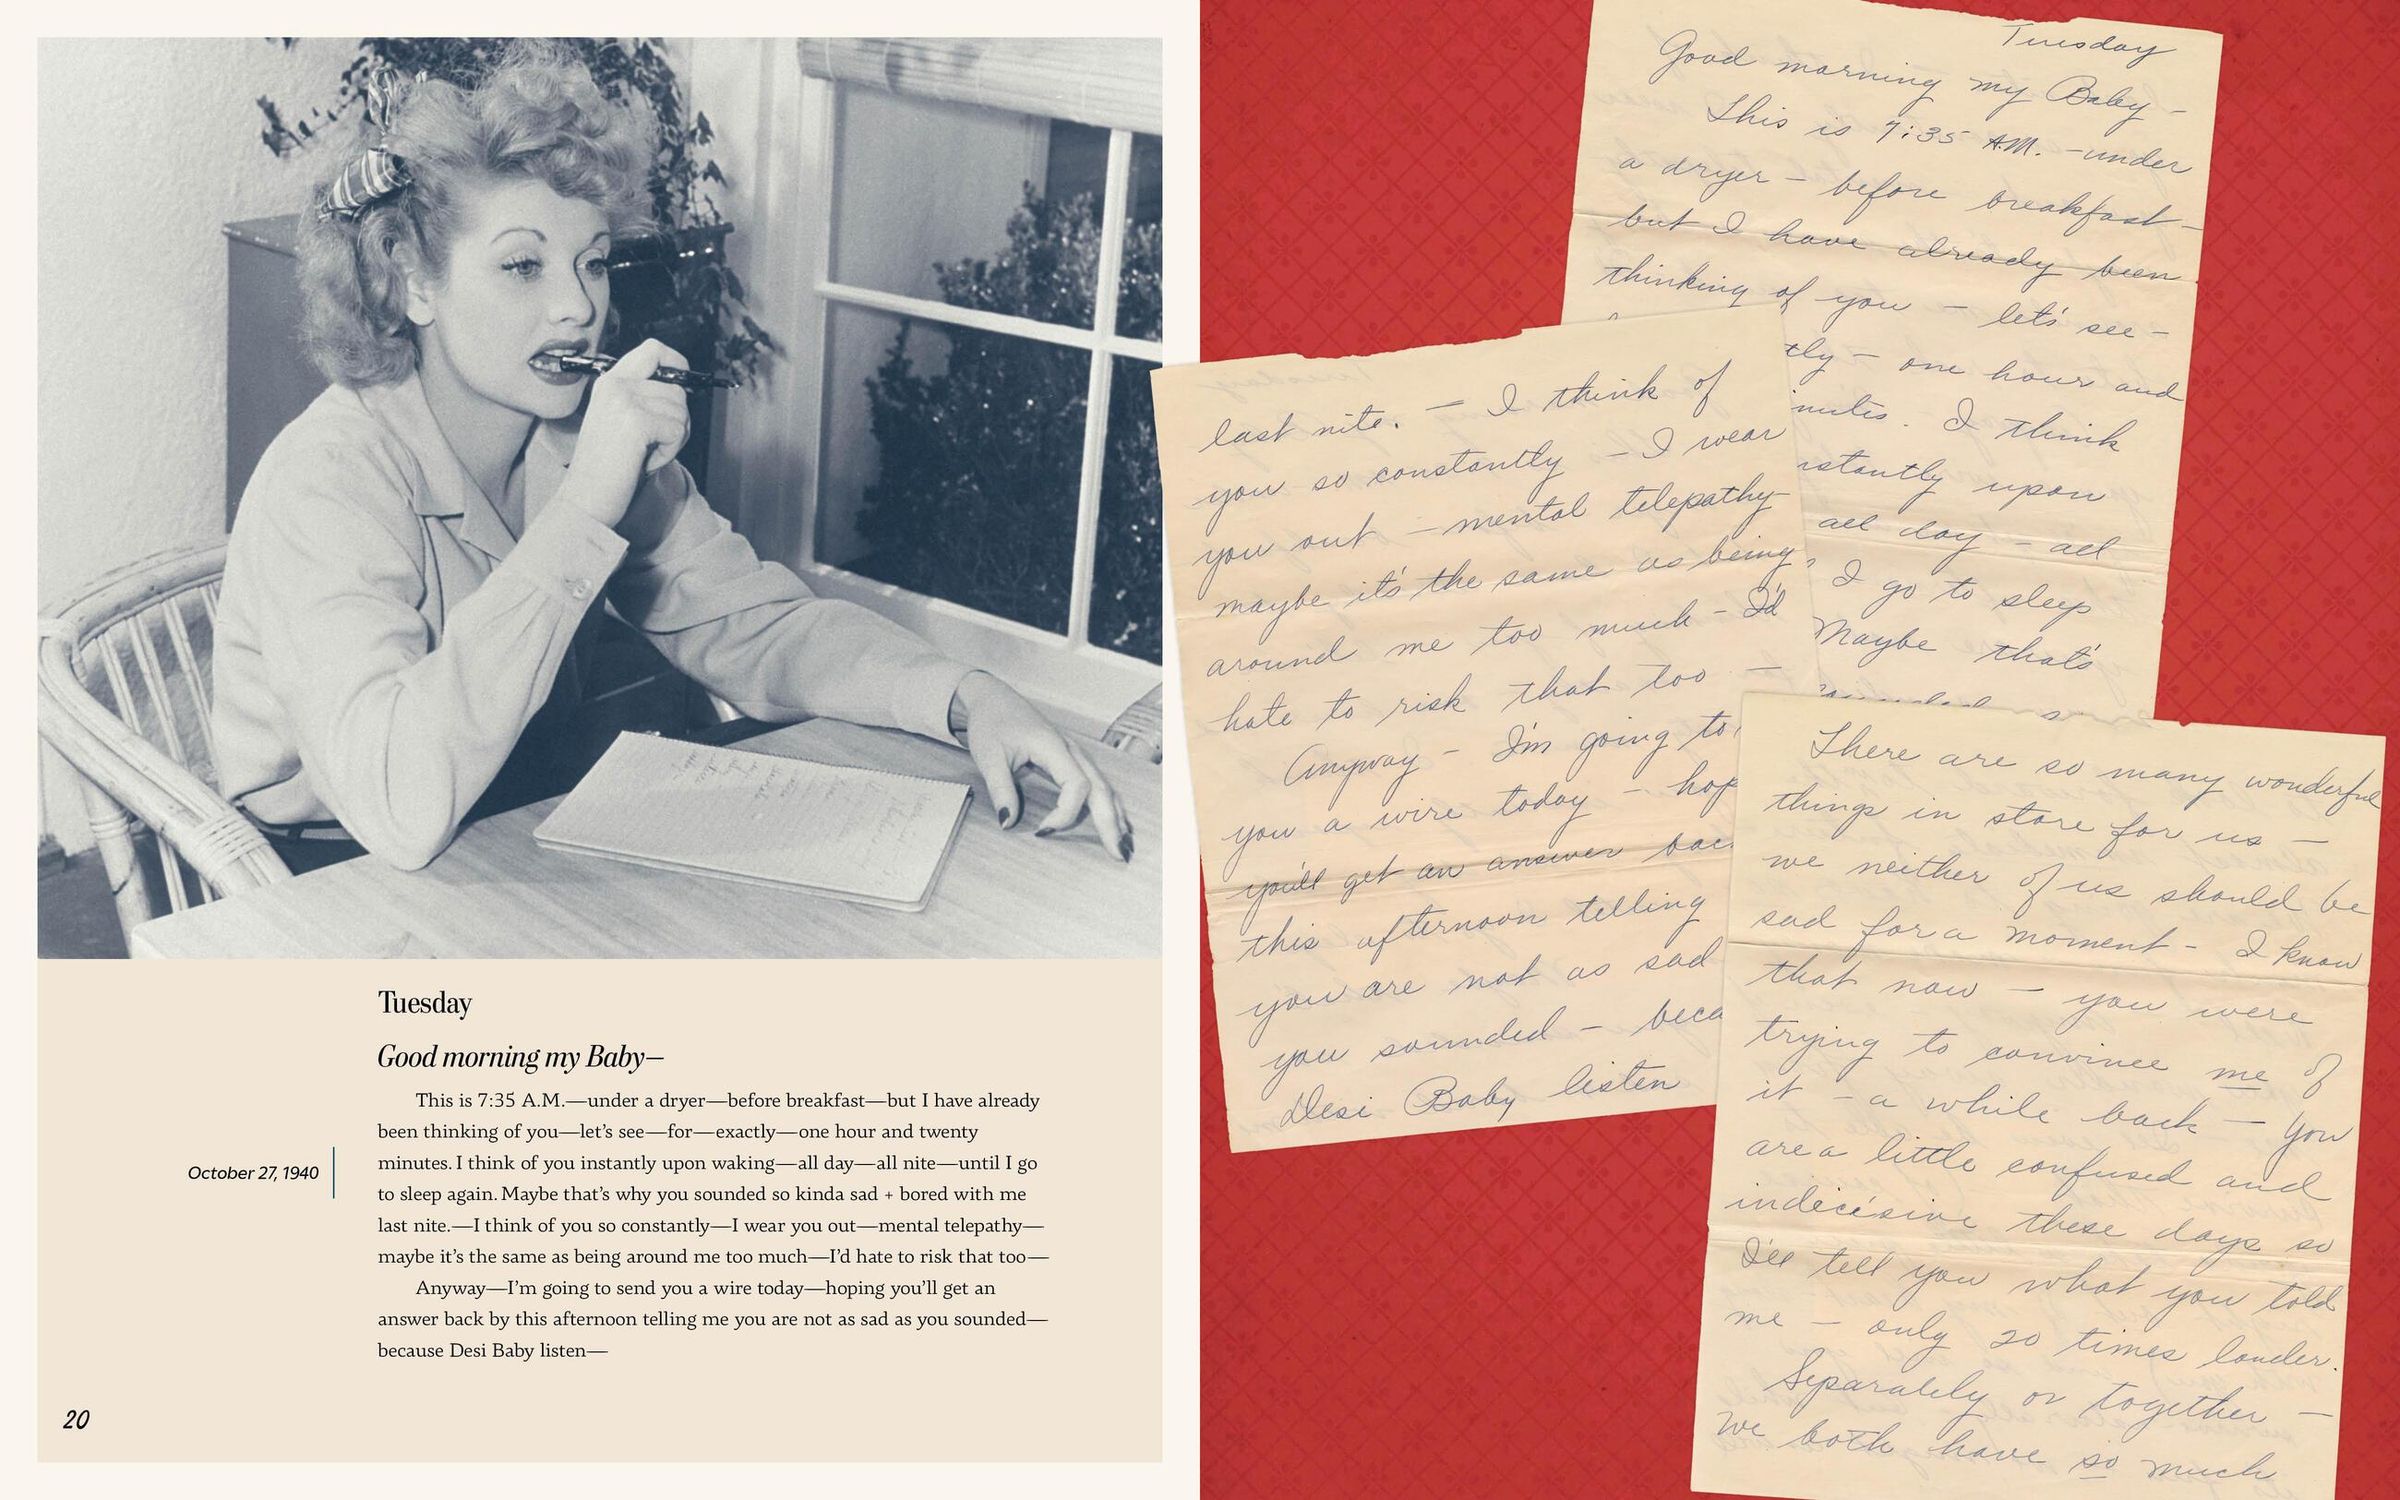 Tuesday
Good morning my Baby—
This is 7:35 A.M.—under a dryer—before breakfast—but I have already
been thinking of you—let's see—for—exactly—one hour and twenty
minutes. I think of you instantly upon waking—all day—all nite—until I go
to sleep again. Maybe that's why you sounded so kinda sad + bored with me
last nite.—I think of you so constantly—I wear you out—mental telepathy—
maybe it's the same as being around me too much—I'd hate to risk that too—
Anyway—I'm going to send you a wire today—hoping you'll get an
answer back by this afternoon telling me you are not as sad as you sounded—
because Desi Baby listen—
October 27, 1940
20
Tuesday
Good morning my Baby –
This is 7:35 A.M. – under
a dryer – before breakfast –
but I have already been
thinking of you – let's see –
tly – one hour and
inutes. I think
nstantly upon
all day – all
I go to sleep
Maybe that's
last nite. – I think of
you so constantly – I wear
you out – mental telepathy –
maybe it's the same as being
around me too much – I'd
hate to risk that too –
Anyway – I'm going to
you a wire today – hop
you'll get an answer bac
this afternoon telling
you are not as sad
you sounded – beca
Desi Baby listen
There are so many wonderful
things in store for us –
we neither of us should be
sad for a moment – I know
that now – you were
trying to convince me of
it – a while back – you
are a little confused and
indecisive these days so
I'll tell you what you told
me – only 20 times louder.
Separately or together –
we both have so much